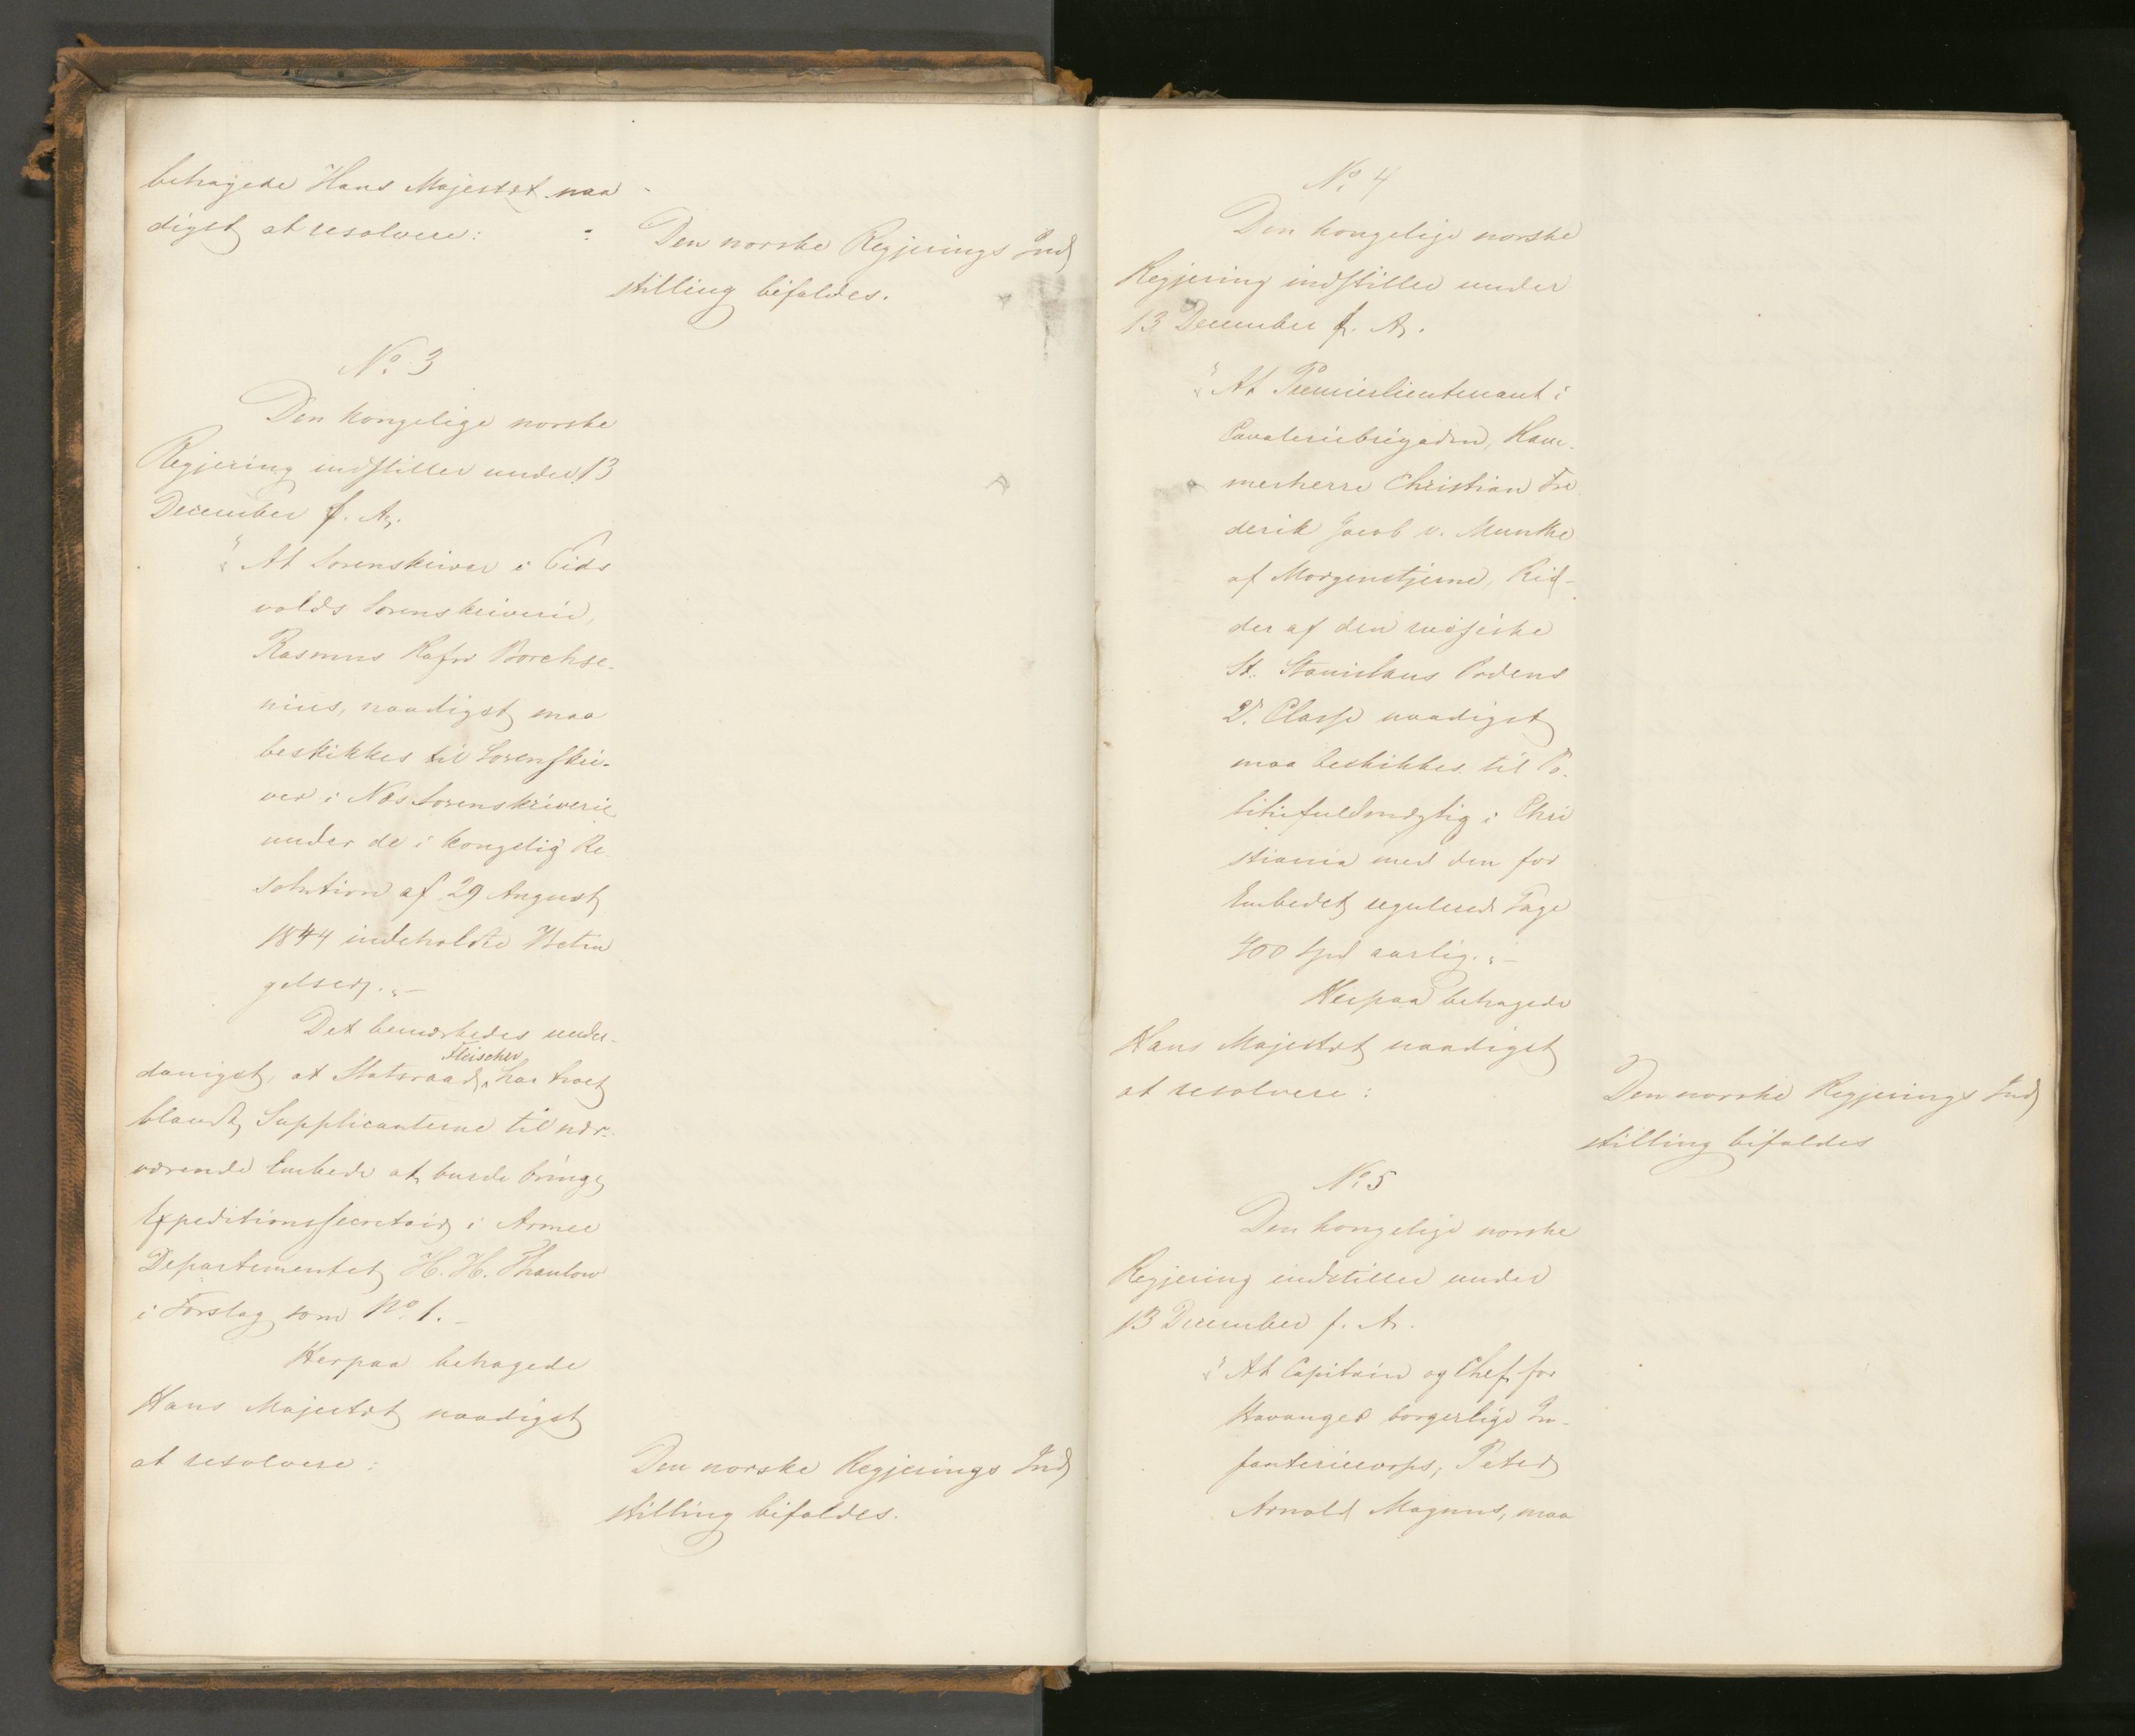 behagede Hans Majestæt naa-
digst at resolvere:
Den norske Regjerings Ind
stilling bifaldes.
No. 3
Den kongelige norske
Regjering indstiller under 13
December f. A.
"At Sorenskriver i Eids
volds Sorenskriverie,
Rasmus Rafn Borchse-
nius, naadigst maa
beskikkes til Sorenskri-
ver i Næs Sorenskriverie
under de i kongelig Re
solution af 29 August
1844 indeholdte Betin
gelser."
Det bemærkedes under-
Fleischer
danigst, at Statsraad har troet
blandt Supplicanterne til nær-
værende Embede at burde bringe
Expeditionssecretair i Armee
Departementet H. H. Thaulow
i Forslag som No. 1.
Herpaa behagede
Hans Majestæt naadigst
at resolvere:
Den norske Regjerings Ind
stilling bifaldes.
No. 4
Den kongelige norske
Regjering indstiller under
13 December f. A.
"At Premierlieutenant i
Cavaleriebrigaden, Kam-
merherre Christian Fre
derik Jacob v. Munthe
af Morgenstjerne, Rid-
der af den russiske
St. Stanislaus Ordens
2. Classe naadigst
maa beskikkes til Po-
litifuldmægtig i Chri
stiania med den for
Embedet regulerede Gage
400 Spd aarlig."
Herpaa behagede
Hans Majestæt naadigst
at resolvere:
Den norske Regjerings Ind
stilling bifaldes
No. 5
Den kongelige norske
Regjering indstiller under
13 December f. A.
"At Capitain og Chef for
Stavanger borgerlige In-
fanteriecorps, Peter
Arnold Magnus, maa